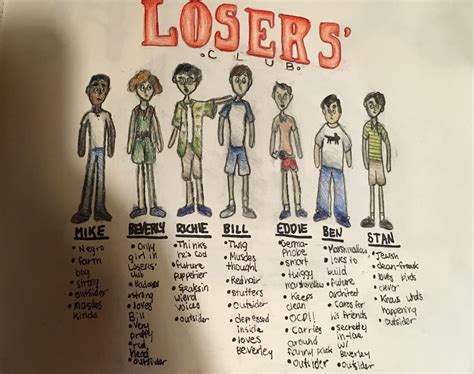 LOSERS'
CLUB
MIKE
• Negro
• farm
boy
• strong
• outsider
• Muscles
kinda
BEVERLY
• Only
girl in
Losers'
Club
• Badass
• strong
• loves
Bill
• Very
pretty
• red
head
• outsider
RICHIE
• Thinks
he's cool
• future
puppeteer
• Speaks in
wierd
voices
• outsider
BILL
• Twig
• Muscles
though!
• Red hair
• stutters
• outsider
• depressed
inside
• loves
Beverley
EDDIE
• Germa-
phobe
• smart
• twiggy
marshmallow
• Keeps
clean
• OCD!!
• Carries
around
fanny pack
• outsider
BEN
• Marshmallow
• loves to
build
• future
architect
• Cares for
his friends
• secretly
in-love
w/
Beverley
• outsider
STAN
• Jewish
• clean-freak
• loves birds
• clever
• Knows whats
happening
• outsider